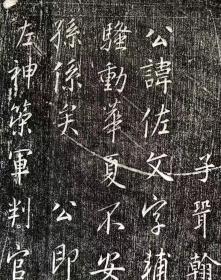 子聟翰
公諱佐文字輔
騷動華夏不安
孫係矣　公即
左神策軍判官